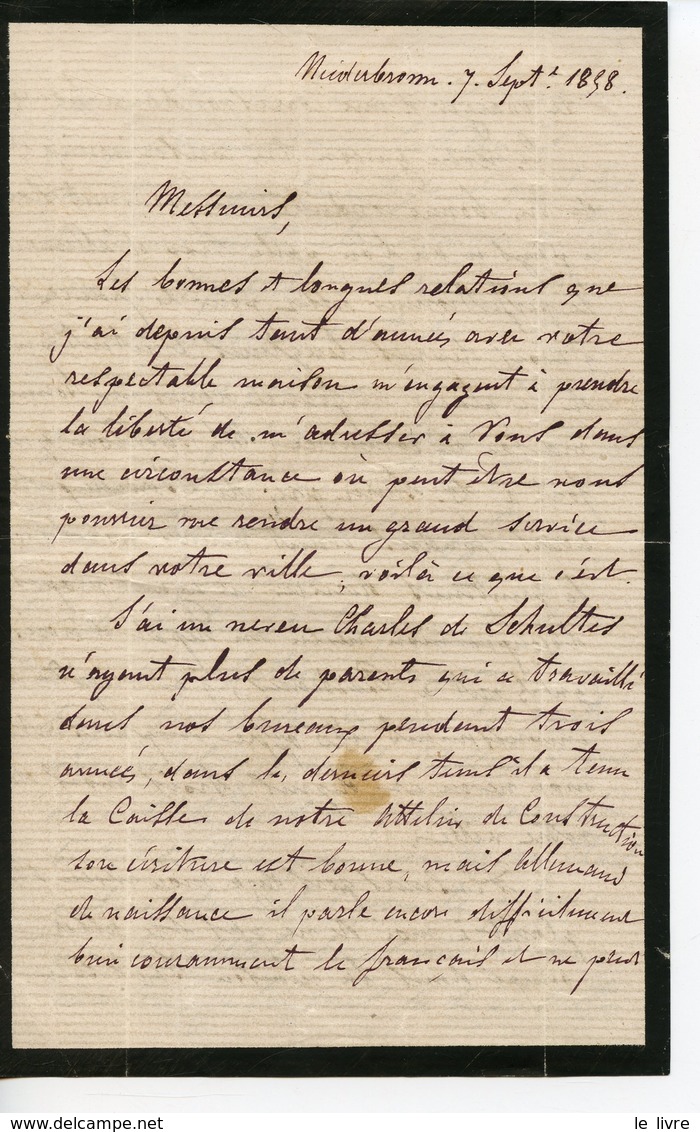 Niederbronn. 7. Sept. 1858.
Messieurs,
Les bonnes et longues relations que
j'ai depuis tant d'années avec votre
respectable maison m'engagent à prendre
la liberté de m'adresser à Vous dans
une circonstance où peut être vous
pourrier me rendre un grand service
dans votre ville, voilà ce que c'est.
J'ai un neveu Charles de Schultes
n'ayant plus de parents qui a travaillé
dans nos bureaux pendant trois
années, dans les derniers tems il a tenu
la Caisse de notre Attelier de Construction
son écriture est bonne, mais Allemand
de naissance il parle encore difficilement
bien couramment le français et ne peut
le livre
delcampe.net